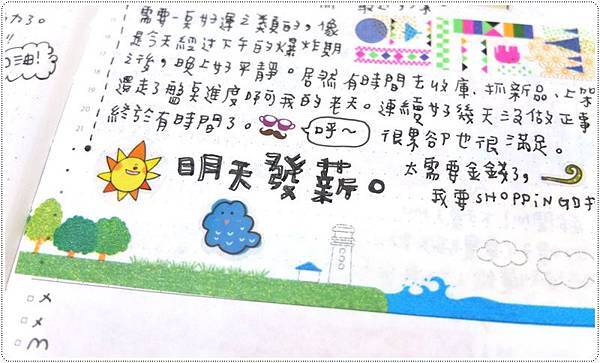 需要一點好運之類的，像
是今天經过下午的爆炸期
之後，晚上好平靜。居然有時間去收庫、抓新品、上架
還走了盤點進度啊我的老天。連續好幾天沒做正事
終於有時間了。
呼～
很累卻也很滿足。
明天發薪。
太需要金錢了，
我要SHOPPING
油!
21
x
x
m